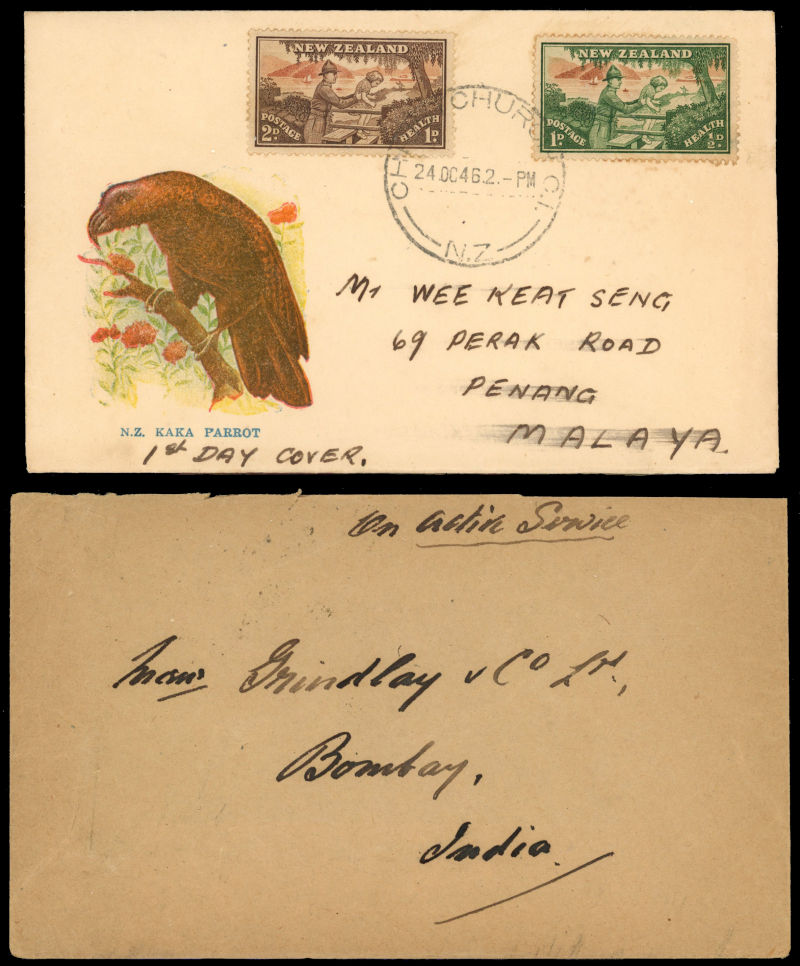 NEW ZEALAND
POSTAGE HEALTH
2D. 1D.
NEW ZEALAND
POSTAGE HEALTH
1D. ½D.
CHRISTCHURCH C.1.
24.OC46.2.-PM
N.Z.
Mr WEE KEAT SENG
69 PERAK ROAD
PENANG
MALAYA.
N.Z. KAKA PARROT
1st DAY COVER.
On Active Service
Messrs Grindlay & Co Ld.,
Bombay,
India.